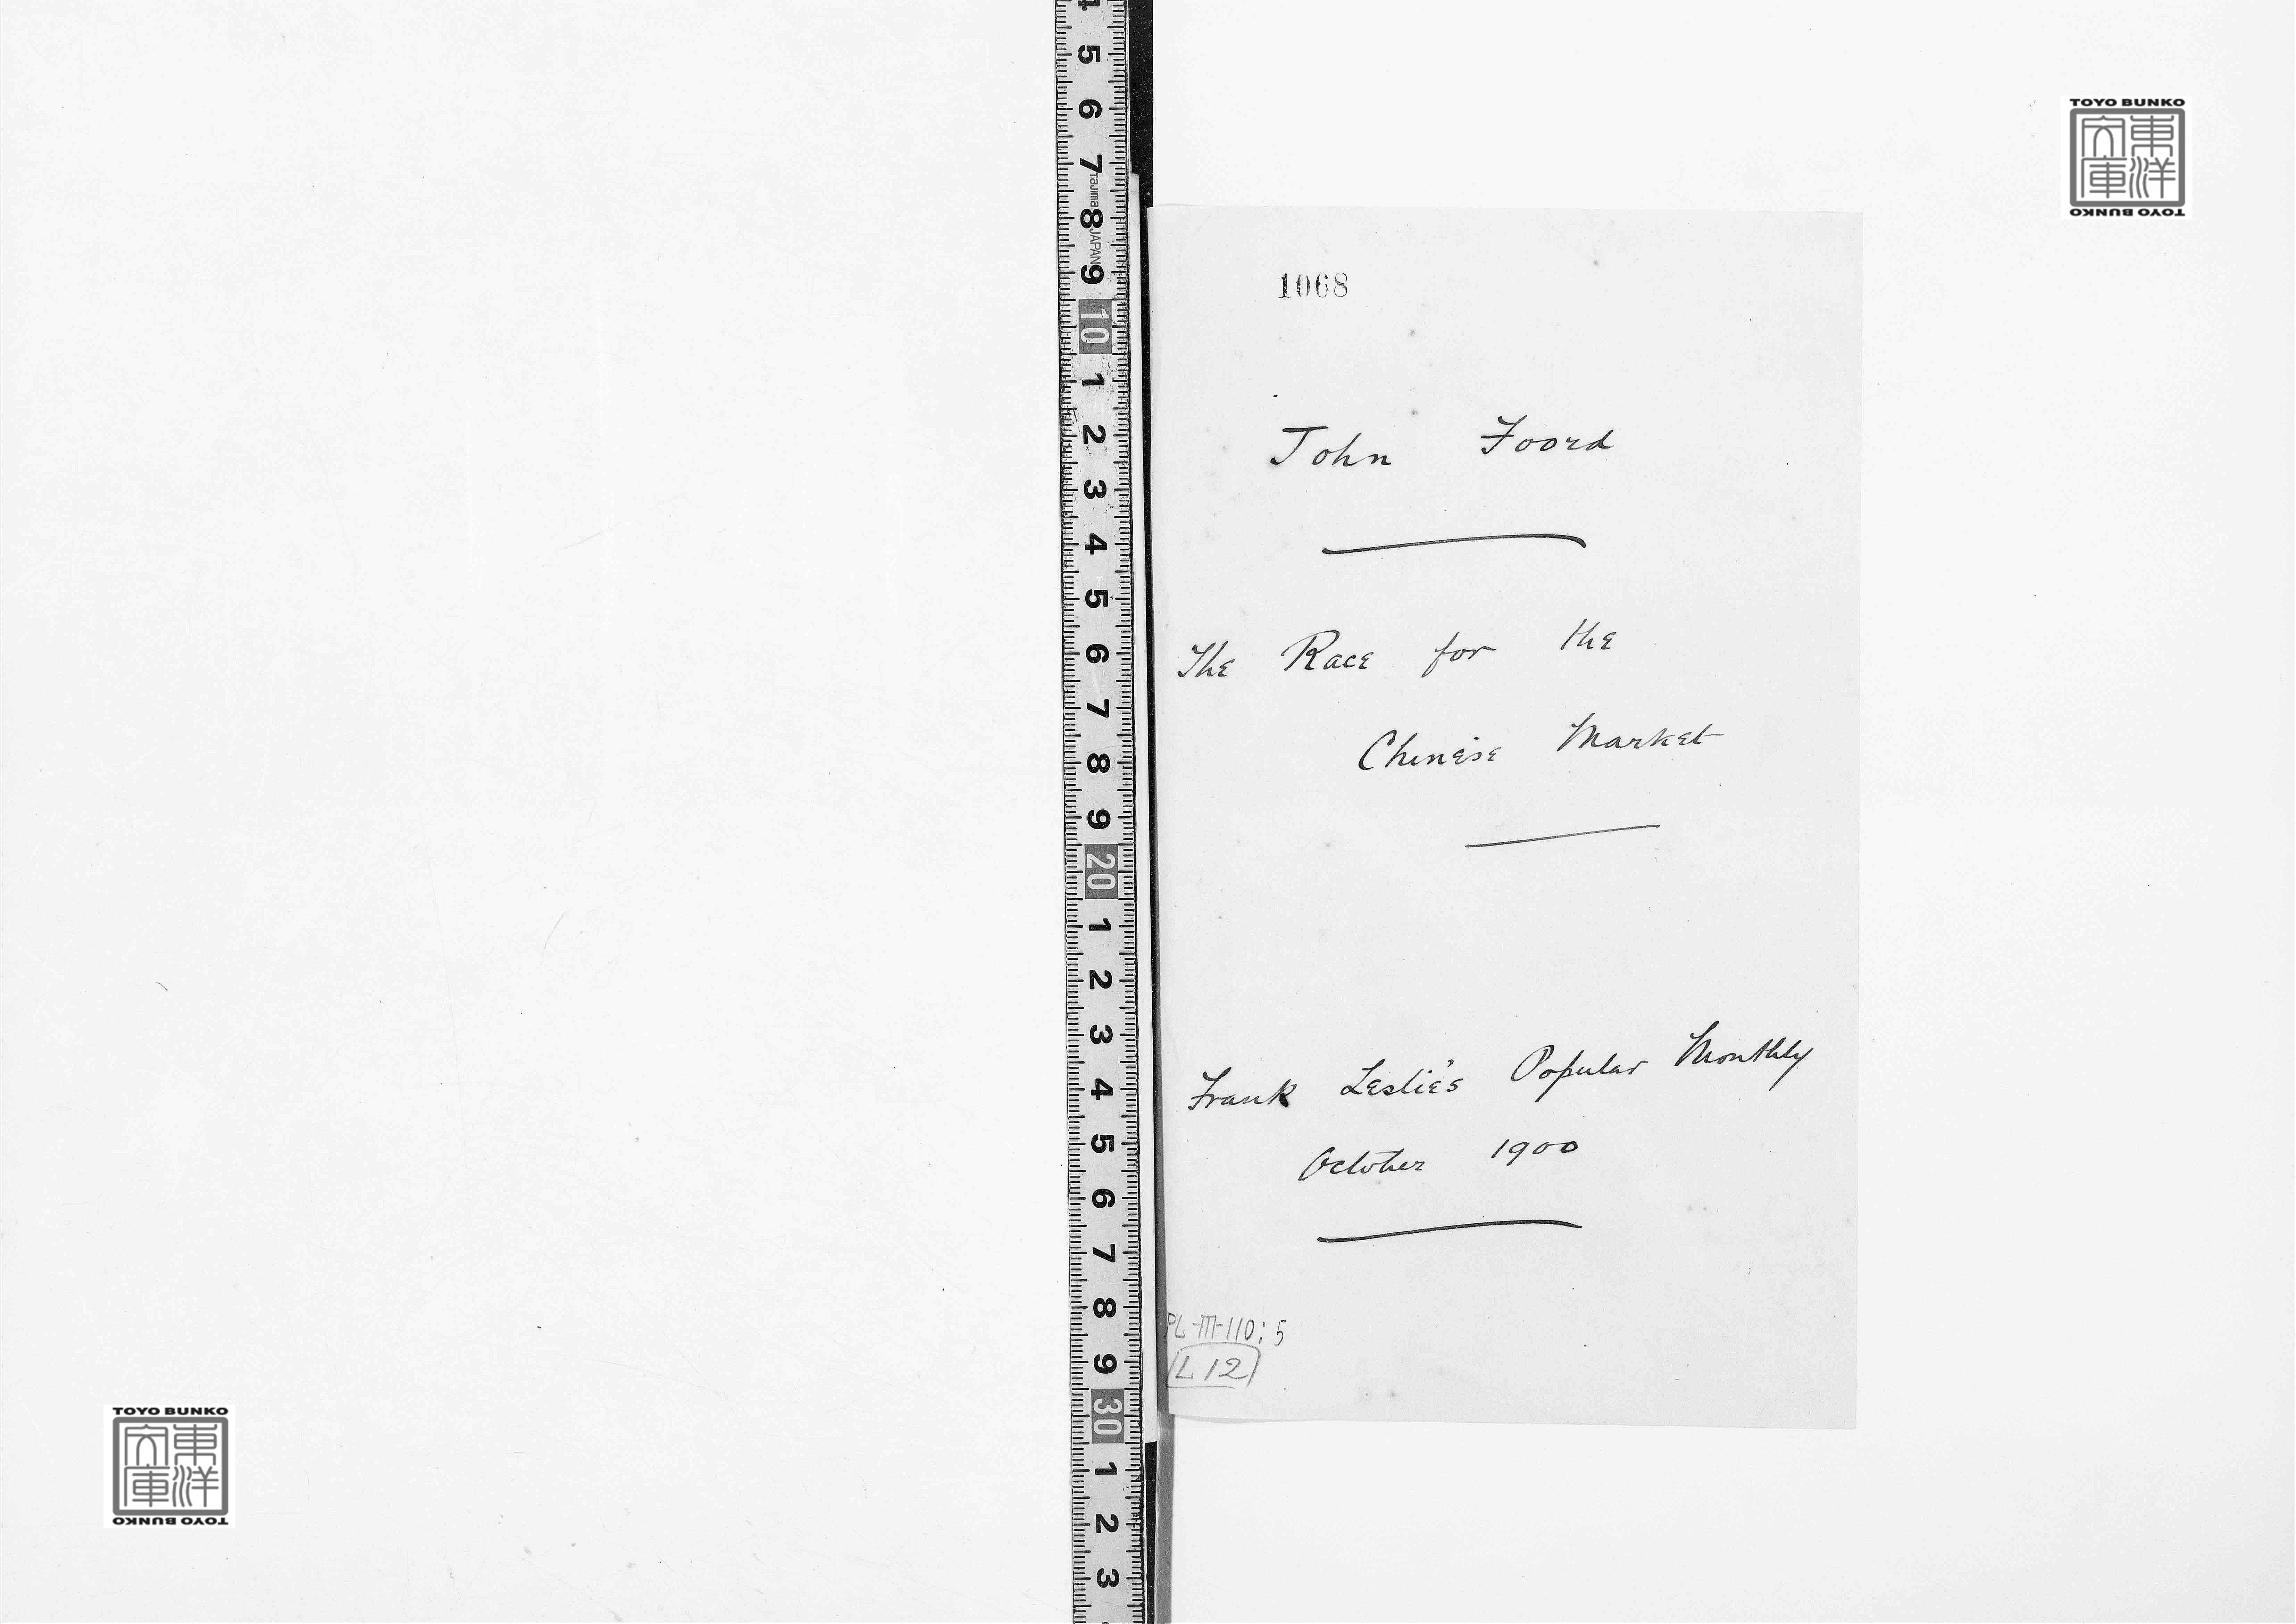 4 5 6 7 8 9 10 1 2 3 4 5 6 7 8 9 20 1 2 3 4 5 6 7 8 9 30 1 2 3
Tajima JAPAN
TOYO BUNKO
東洋文庫
TOYO BUNKO
1068
John Foord
The Race for the
Chinese Market
Frank Leslie's Popular Monthly
October 1900
PL-III-110; 5
L12
TOYO BUNKO
東洋文庫
TOYO BUNKO